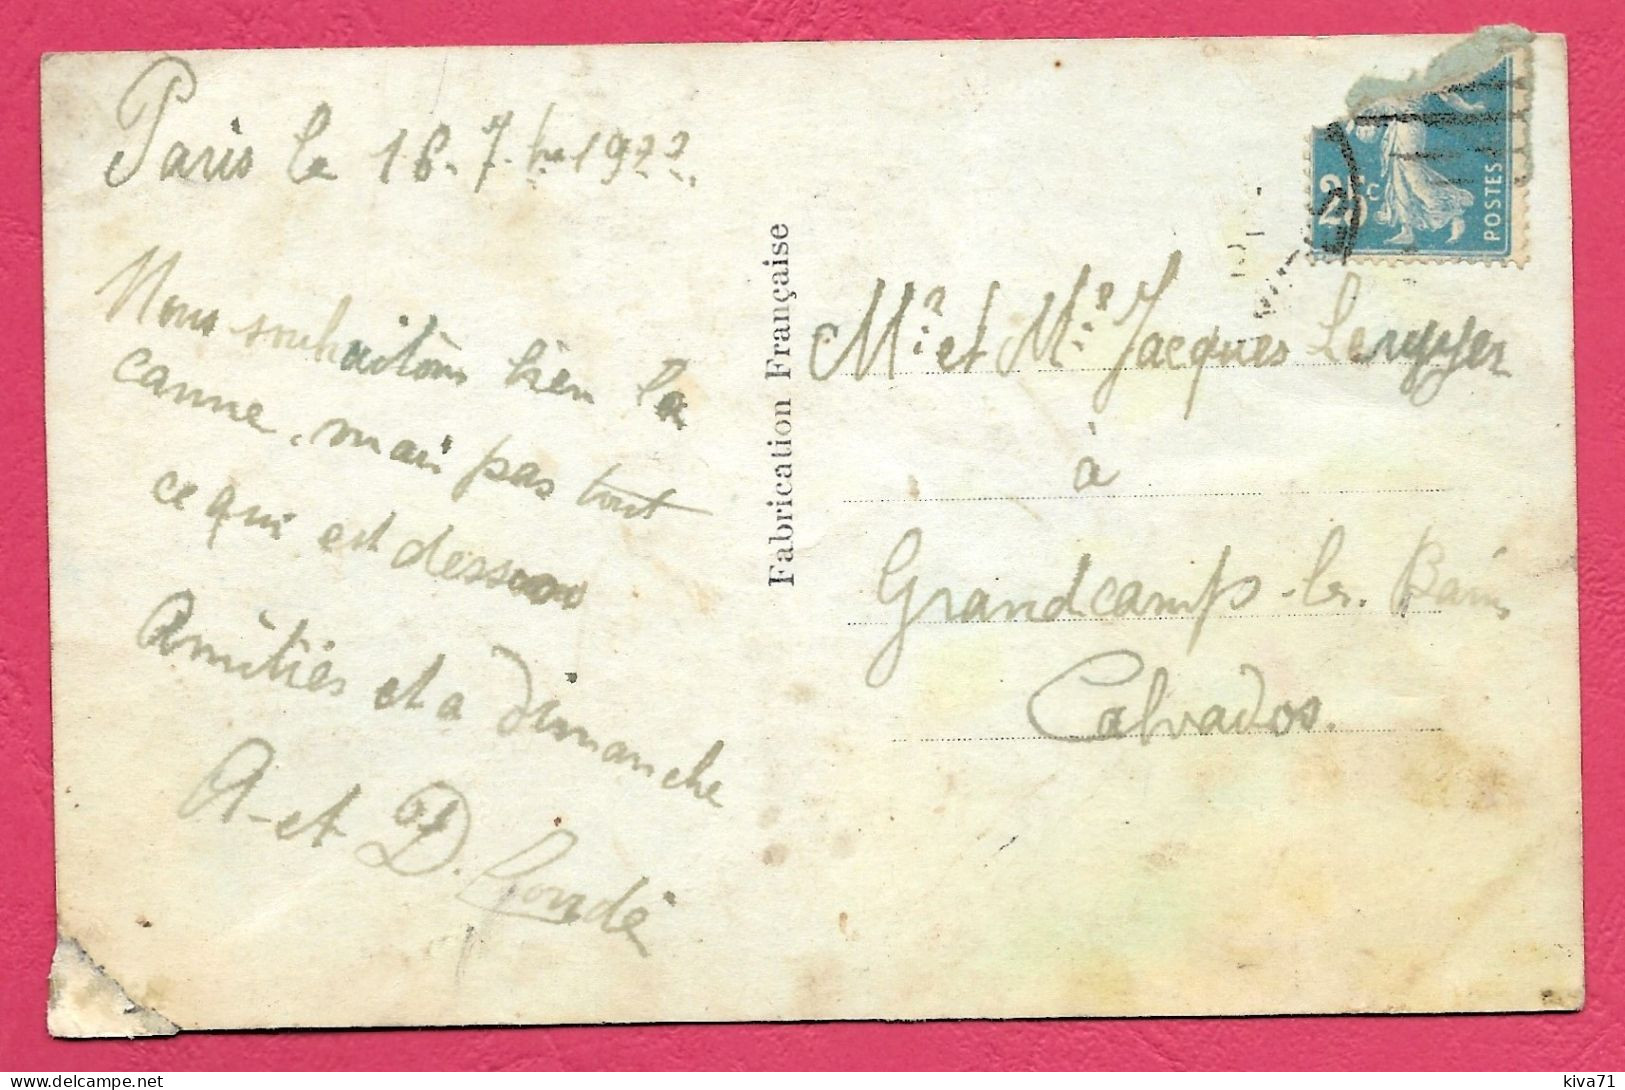 Paris le 18. 7.bre 1922.
Nous souhaitons bien la
canne, mais pas tout
ce qui est dessous
Amitiés et a dimanche
A. et D.
Fabrication Française
25c
POSTES
Mr. et Me. Jacques
à
Grandcamp-les-Bains
Calvados.
kiva71